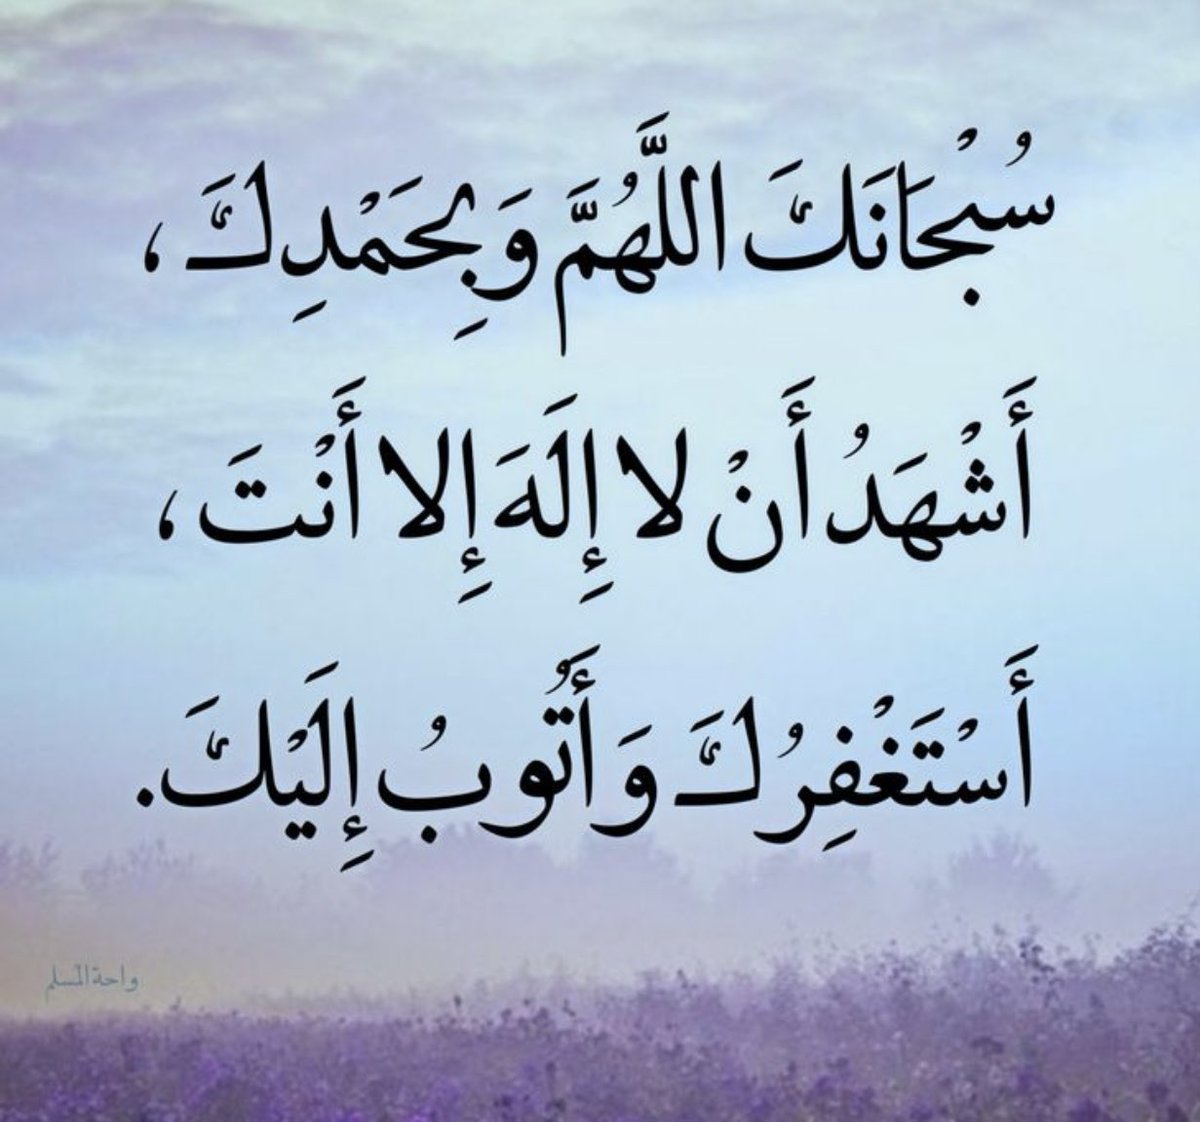 سُبْحَانَكَ اللَّهُمَّ وَبِحَمْدِكَ ،
أَشْهَدُ أَنْ لا إِلَهَ إِلا أَنْتَ ،
أَسْتَغْفِرُكَ وَأَتُوبُ إِلَيْكَ.
واحة المسلم